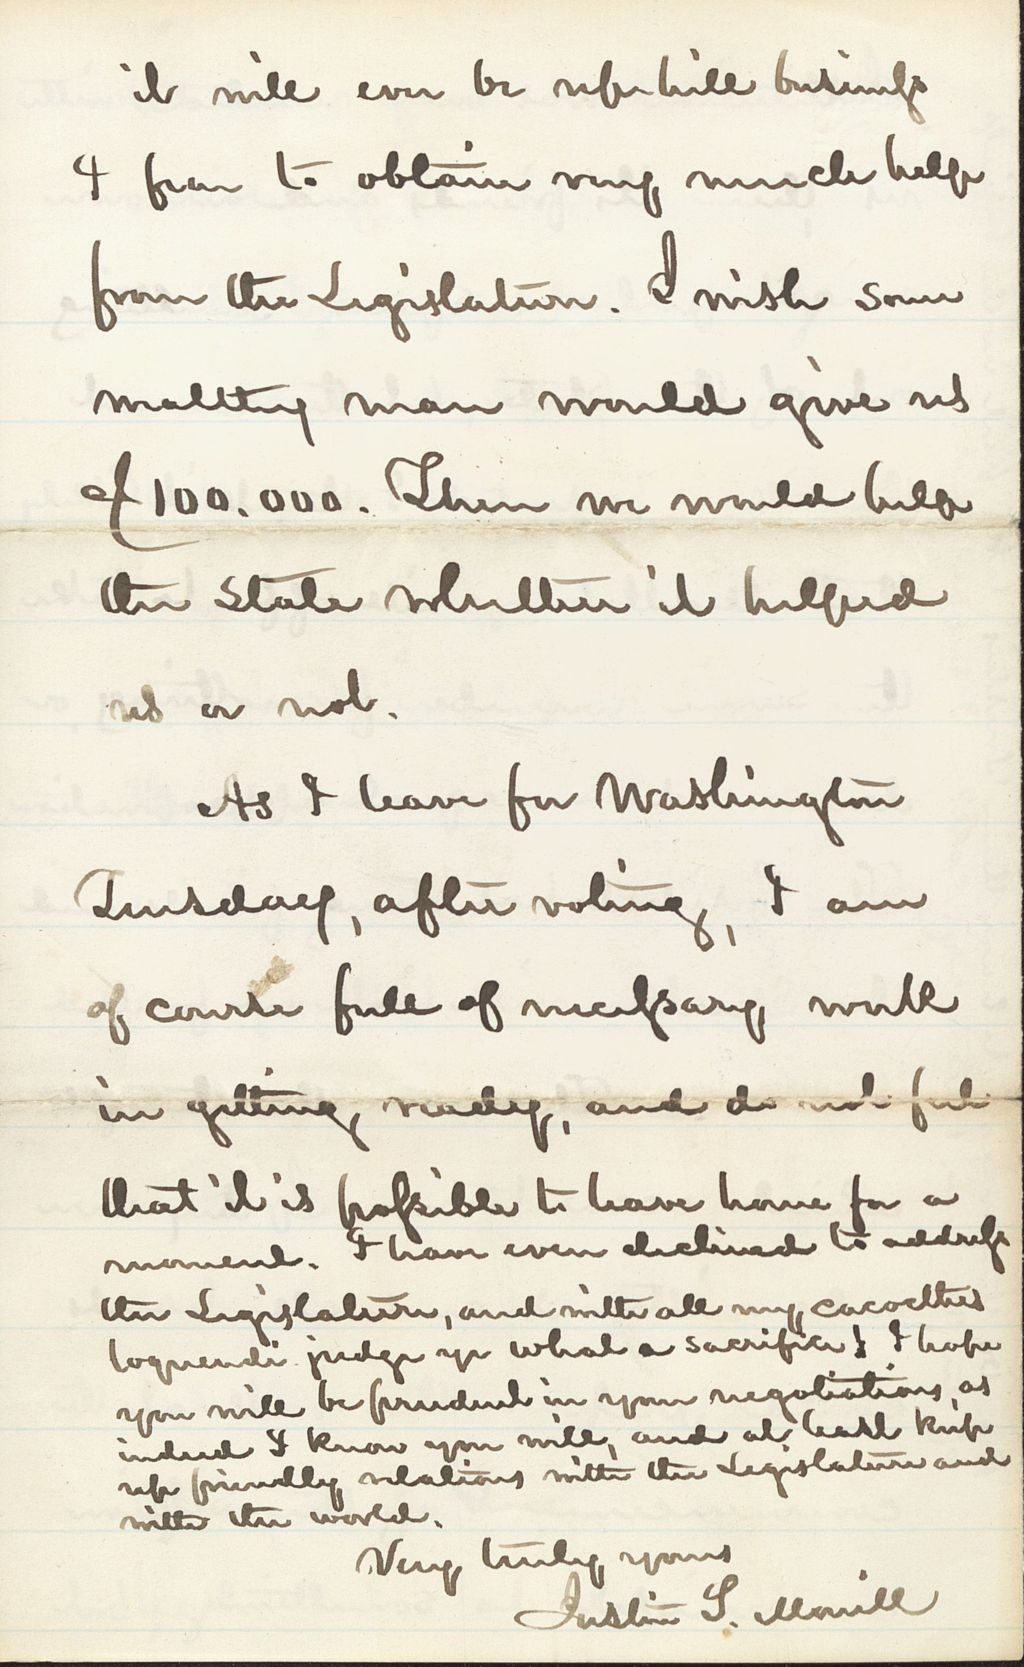 it will ever be up hill business
I fear to obtain very much help
from the Legislature. I wish some
wealthy man would give us
$100.000. Then we would help
the State whether it helped
us or not.
As I leave for Washington
Tuesday, after voting, I am
of course full of necessary work
in getting ready, and do not feel
that it is possible to leave home for a
moment. I have even declined to address
the Legislature, and with all my cacoethes
loquendi judge ye what a sacrifice! I hope
you will be prudent in your negotiations, as
indeed I know you will, and at least keep
up friendly relations with the Legislature and
with the world.
Very truly yours
Justin S. Morrill